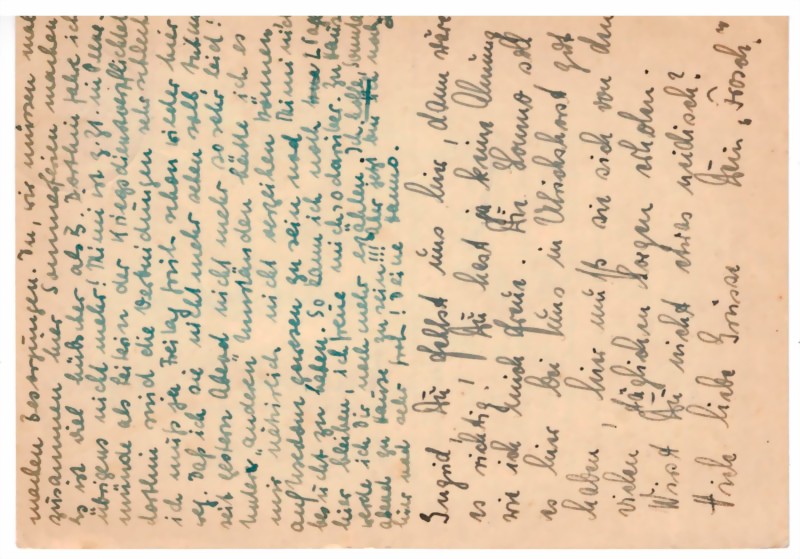 machen Besorgungen. Du, wir müssen mal
zusammen hier Sommerferien machen
Es ist viel hübscher als B. Dorthin fahre ich
übrigens nicht mehr! Mimi ist z. Zt. in Pene-
münde als Leiterin der Kriegsdienstverpflichteten
dorthin sind die Verbindungen sehr schlecht
ich muß ja Freitag früh schon wieder hier
weg. Daß ich sie nicht mehr sehen soll tut mir
seit gestern Abend nicht mehr so sehr leid!
Unter anderen Umständen hätte ich es
mir natürlich nicht verzeihen können,
auf Usedom gewesen zu sein und Mimi nicht
besucht zu haben. So kann ich noch 2 Tage
hier bleiben, ich freue mich so darüber. Zu Hause
werde ich Dir noch mehr erzählen.
abend zu Hause zu sein!!! Aber jetzt bin ich noch
hier und sehr froh! Deine Hanno.
Ingrid! Du fehlst uns hier, dann wäre
es richtig! Du hast ja keine Ahnung
wie ich mich freue. Die Hanno soll
es hier bei uns in Ulrichshorst gut
haben! hier muß sie sich von den
vielen täglichen Sorgen erholen.
Wirst Du nicht etwas neidisch?
Viele liebe Grüsse Dein „Frosch."